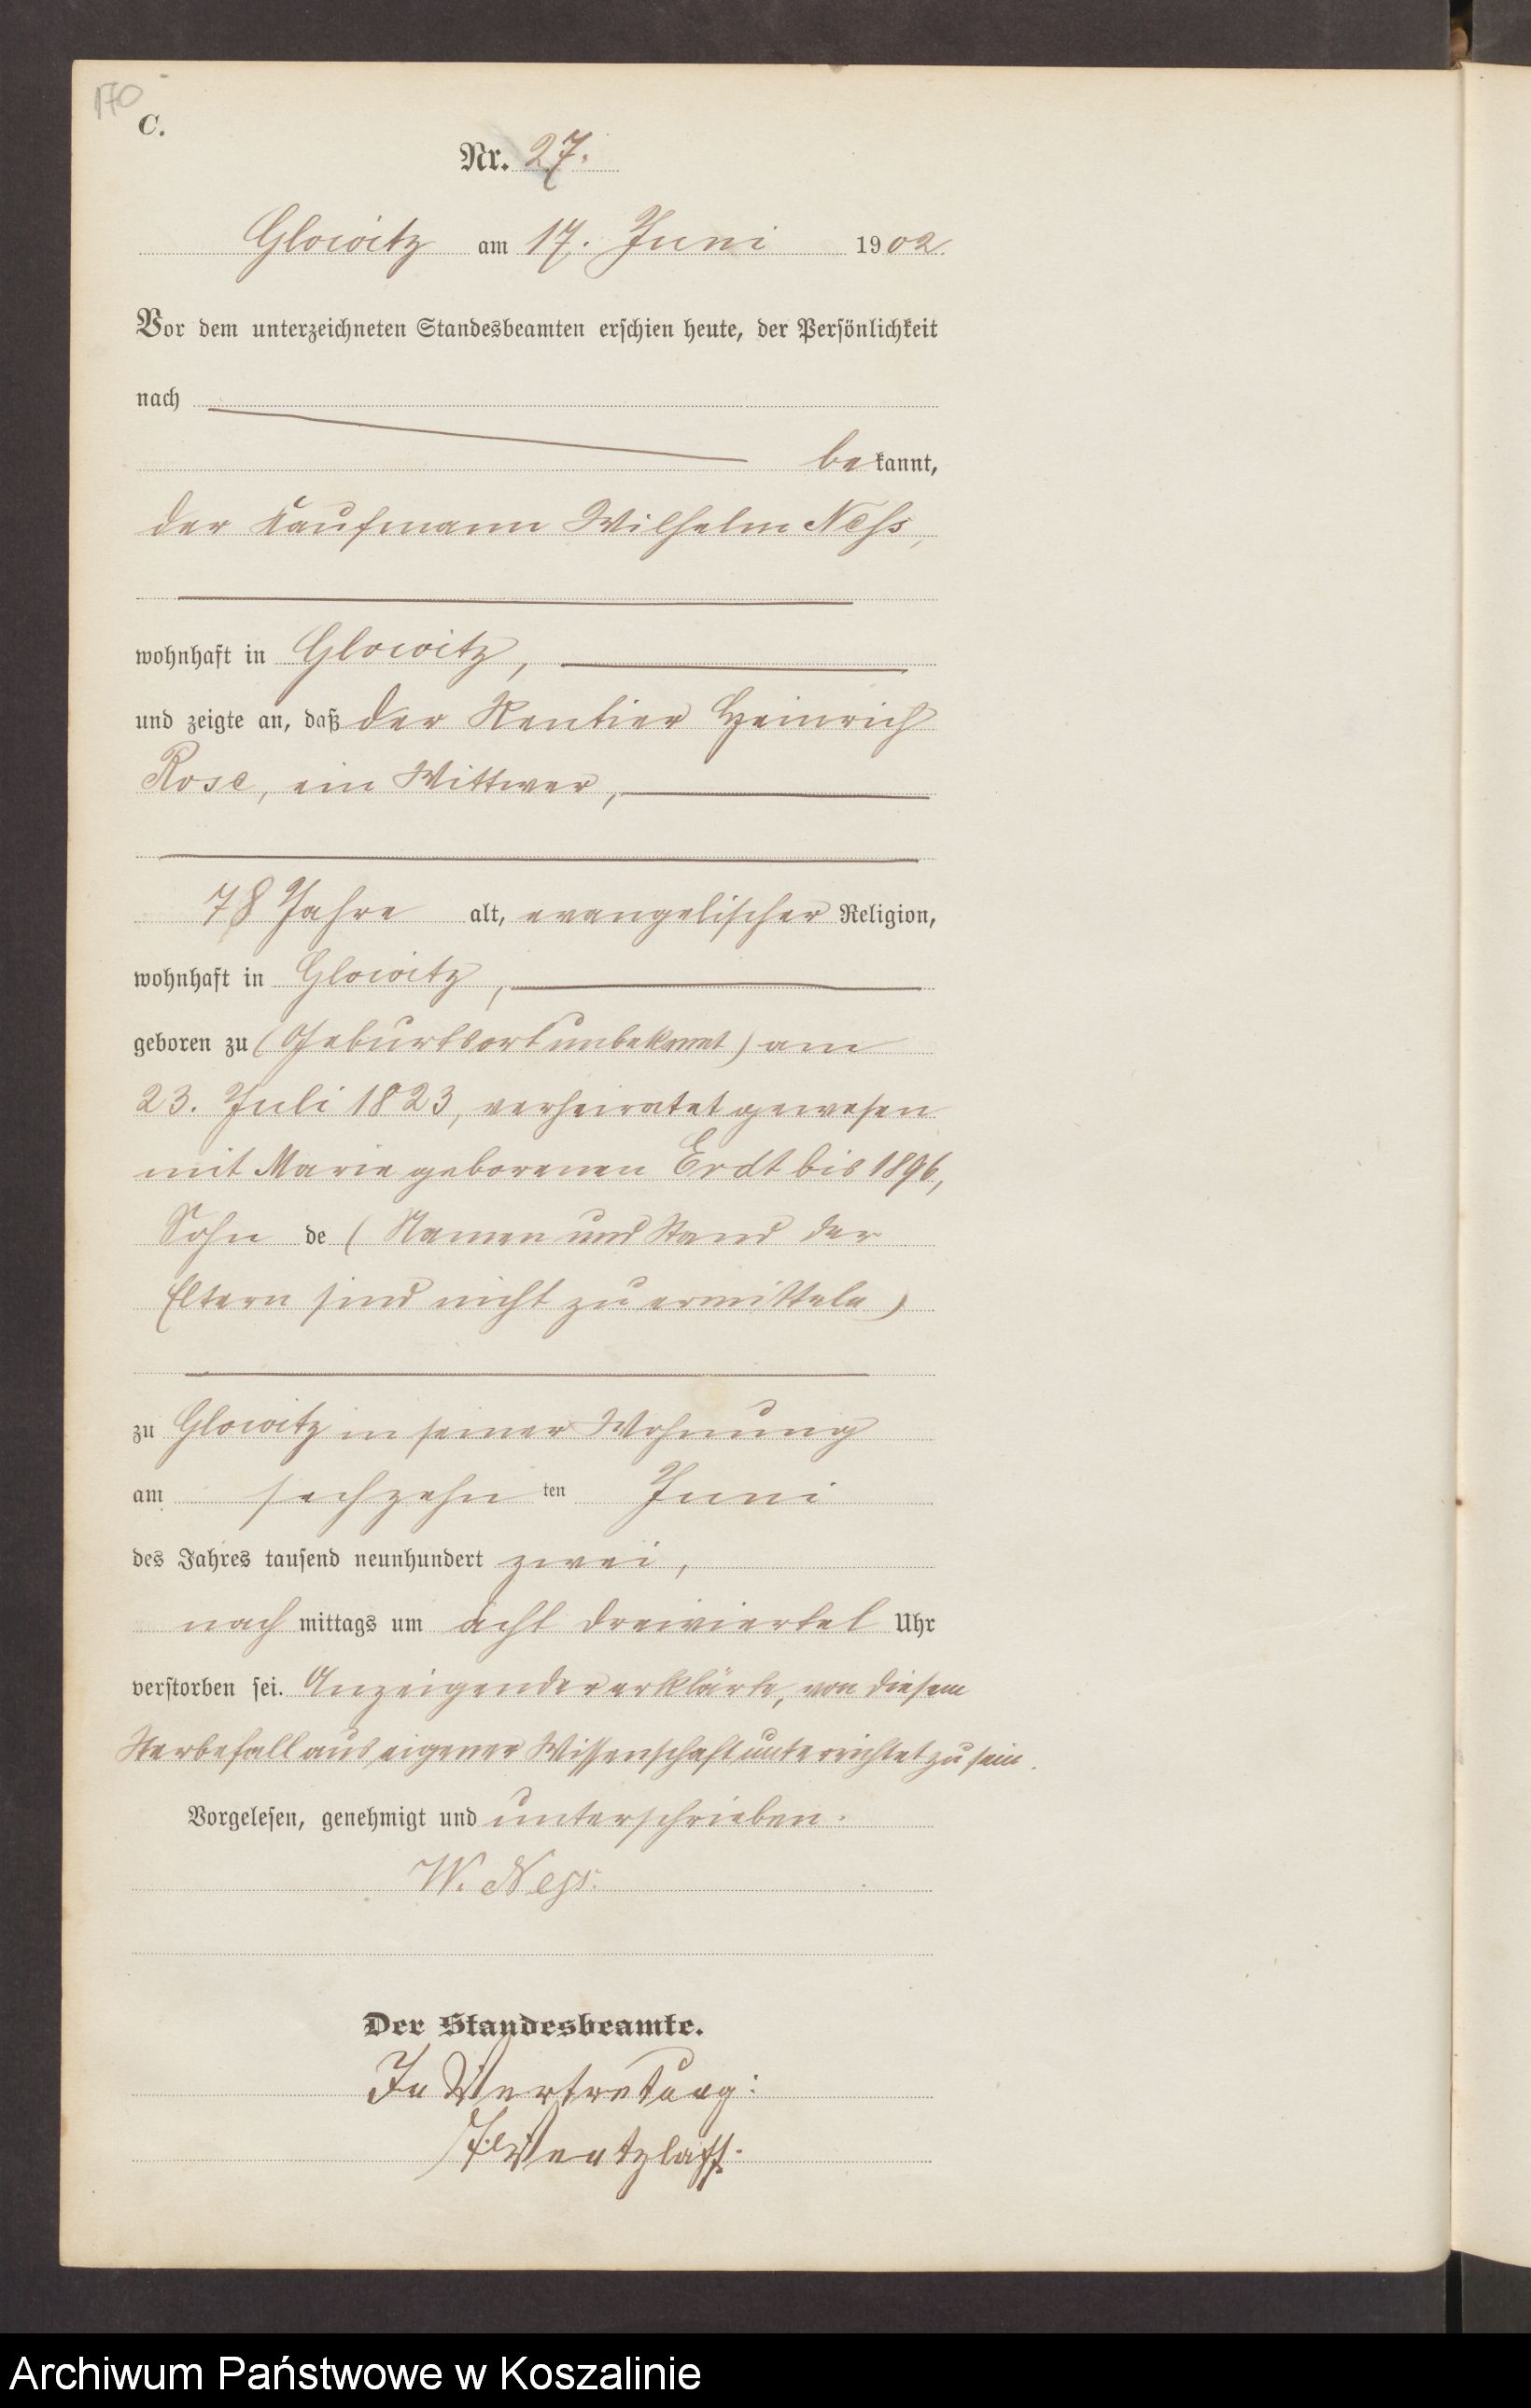 170
C.
Nr. 27.
Glowitz am 17. Juni 1902.
Vor dem unterzeichneten Standesbeamten erschien heute, der Persönlichkeit
nach
bekannt,
der Kaufmann Wilhelm Neß,
wohnhaft in Glowitz,
und zeigte an, daß der Rentier Heinrich
Rose, ein Wittwer,
78 Jahre alt, evangelischer Religion,
wohnhaft in Glowitz,
geboren zu (Geburtsort unbekannt) am
23. Juli 1823, verheiratet gewesen
mit Marie geborenen Erdt bis 1896,
Sohn de (Namen und Stand der
Eltern sind nicht zu ermitteln)
zu Glowitz in seiner Wohnung
am sechzehn ten Juni
des Jahres tausend neunhundert zwei,
nach mittags um acht dreiviertel Uhr
verstorben sei. Anzeigender erklärte, von diesem
Sterbefall aus eigener Wissenschaft unterrichtet zu sein.
Vorgelesen, genehmigt und unterschrieben.
W. Ness.
Der Standesbeamte.
In Vertretung:
Wentzlaff.
Archiwum Państwowe w Koszalinie